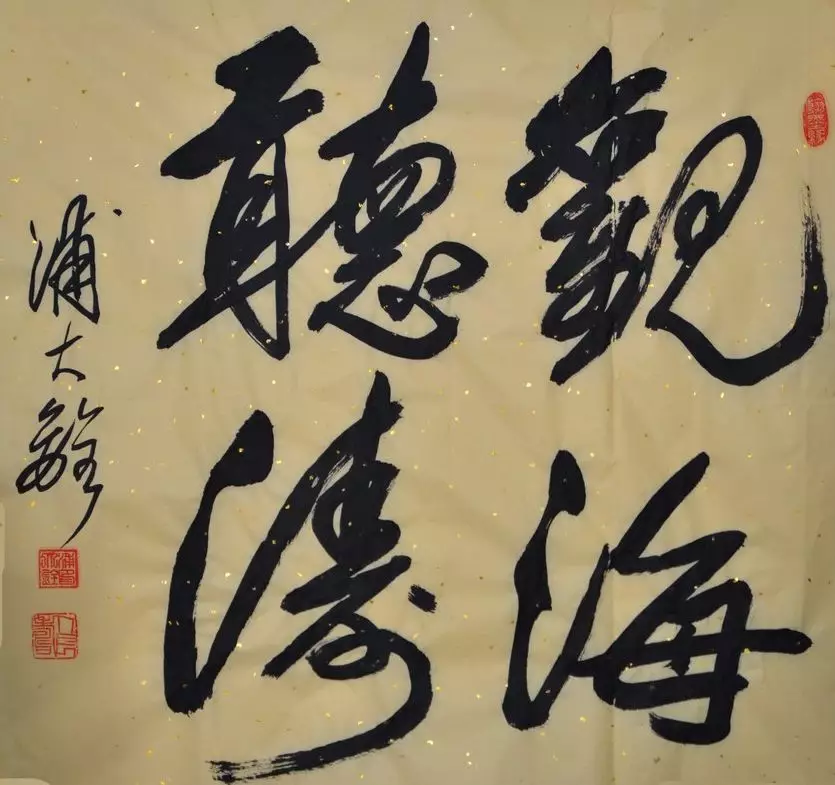 觀海
聽濤
浦大